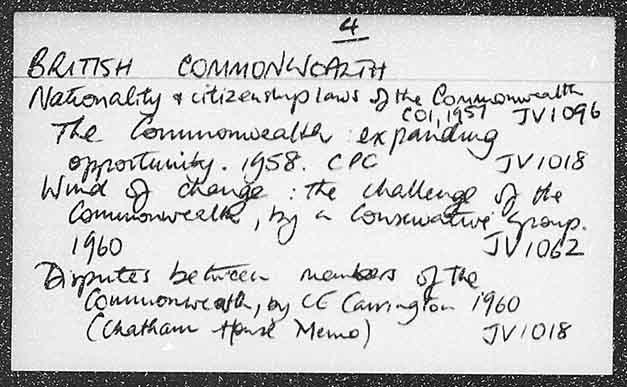 4
BRITISH COMMONWEALTH
Nationality & citizenship laws of the Commonwealth
COI, 1957 JV1096
The Commonwealth : expanding
opportunity. 1958. CPC JV1018
Wind of change : the challenge of the
Commonwealth, by a Conservative Group.
1960 JV1062
Disputes between members of the
Commonwealth, by CE Carrington 1960
(Chatham House Memo) JV1018